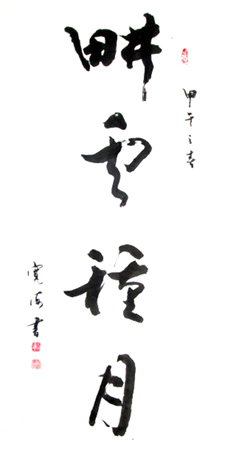 甲午之春
畊雲種月
海書